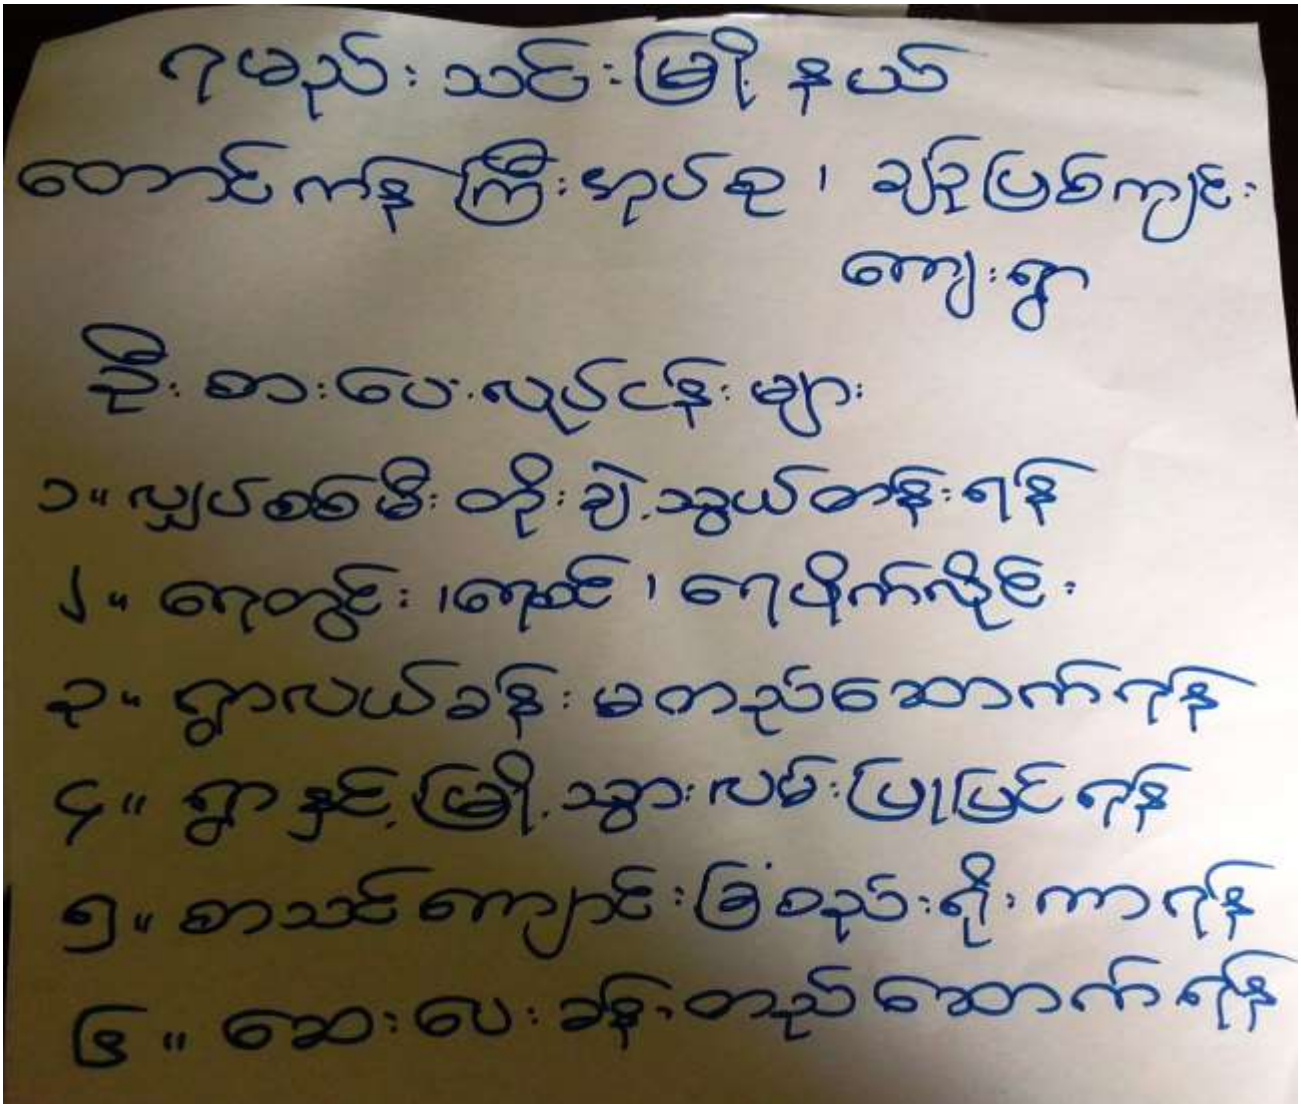 ရမည်းသင်းမြို့နယ်
တောင်ကန်ကြီးအုပ်စု၊ ချဉ်မြစ်ကျင်း
ကျေးရွာ
ဦးစားပေးလုပ်ငန်းများ
၁။ လျှပ်စစ်မီးတိုးချဲ့သွယ်တန်းရန်
၂။ ရေတွင်း၊ရေစင်၊ ရေပိုက်လိုင်း
၃။ ရွာလယ်ခန်းမတည်ဆောက်ရန်
၄။ ရွာနှင့်မြို့သွားလမ်းပြုပြင်ရန်
၅။ စာသင်ကျောင်းခြံစည်းရိုးကာရန်
၆။ ဆေးပေးခန်းတည်ဆောက်ရန်